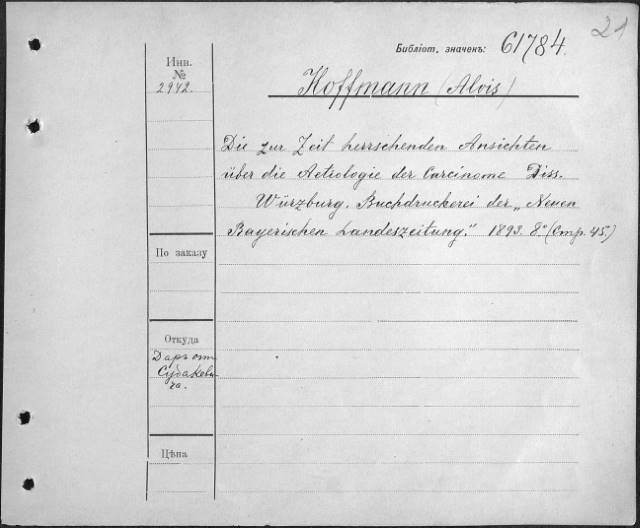 21
Библіот. значекъ: 61784.
Инв.
№
2942.
Hoffmann (Alois)
Die zur Zeit herrschenden Ansichten
über die Aetiologie der Carcinome Diss.
Würzburg. Buchdruckerei der „Neuen
Bayerischen Landeszeitung." 1893. 8° (Стр. 45.)
По заказу
Откуда
Даръ отъ
Судакеви-
ча.
Цѣна